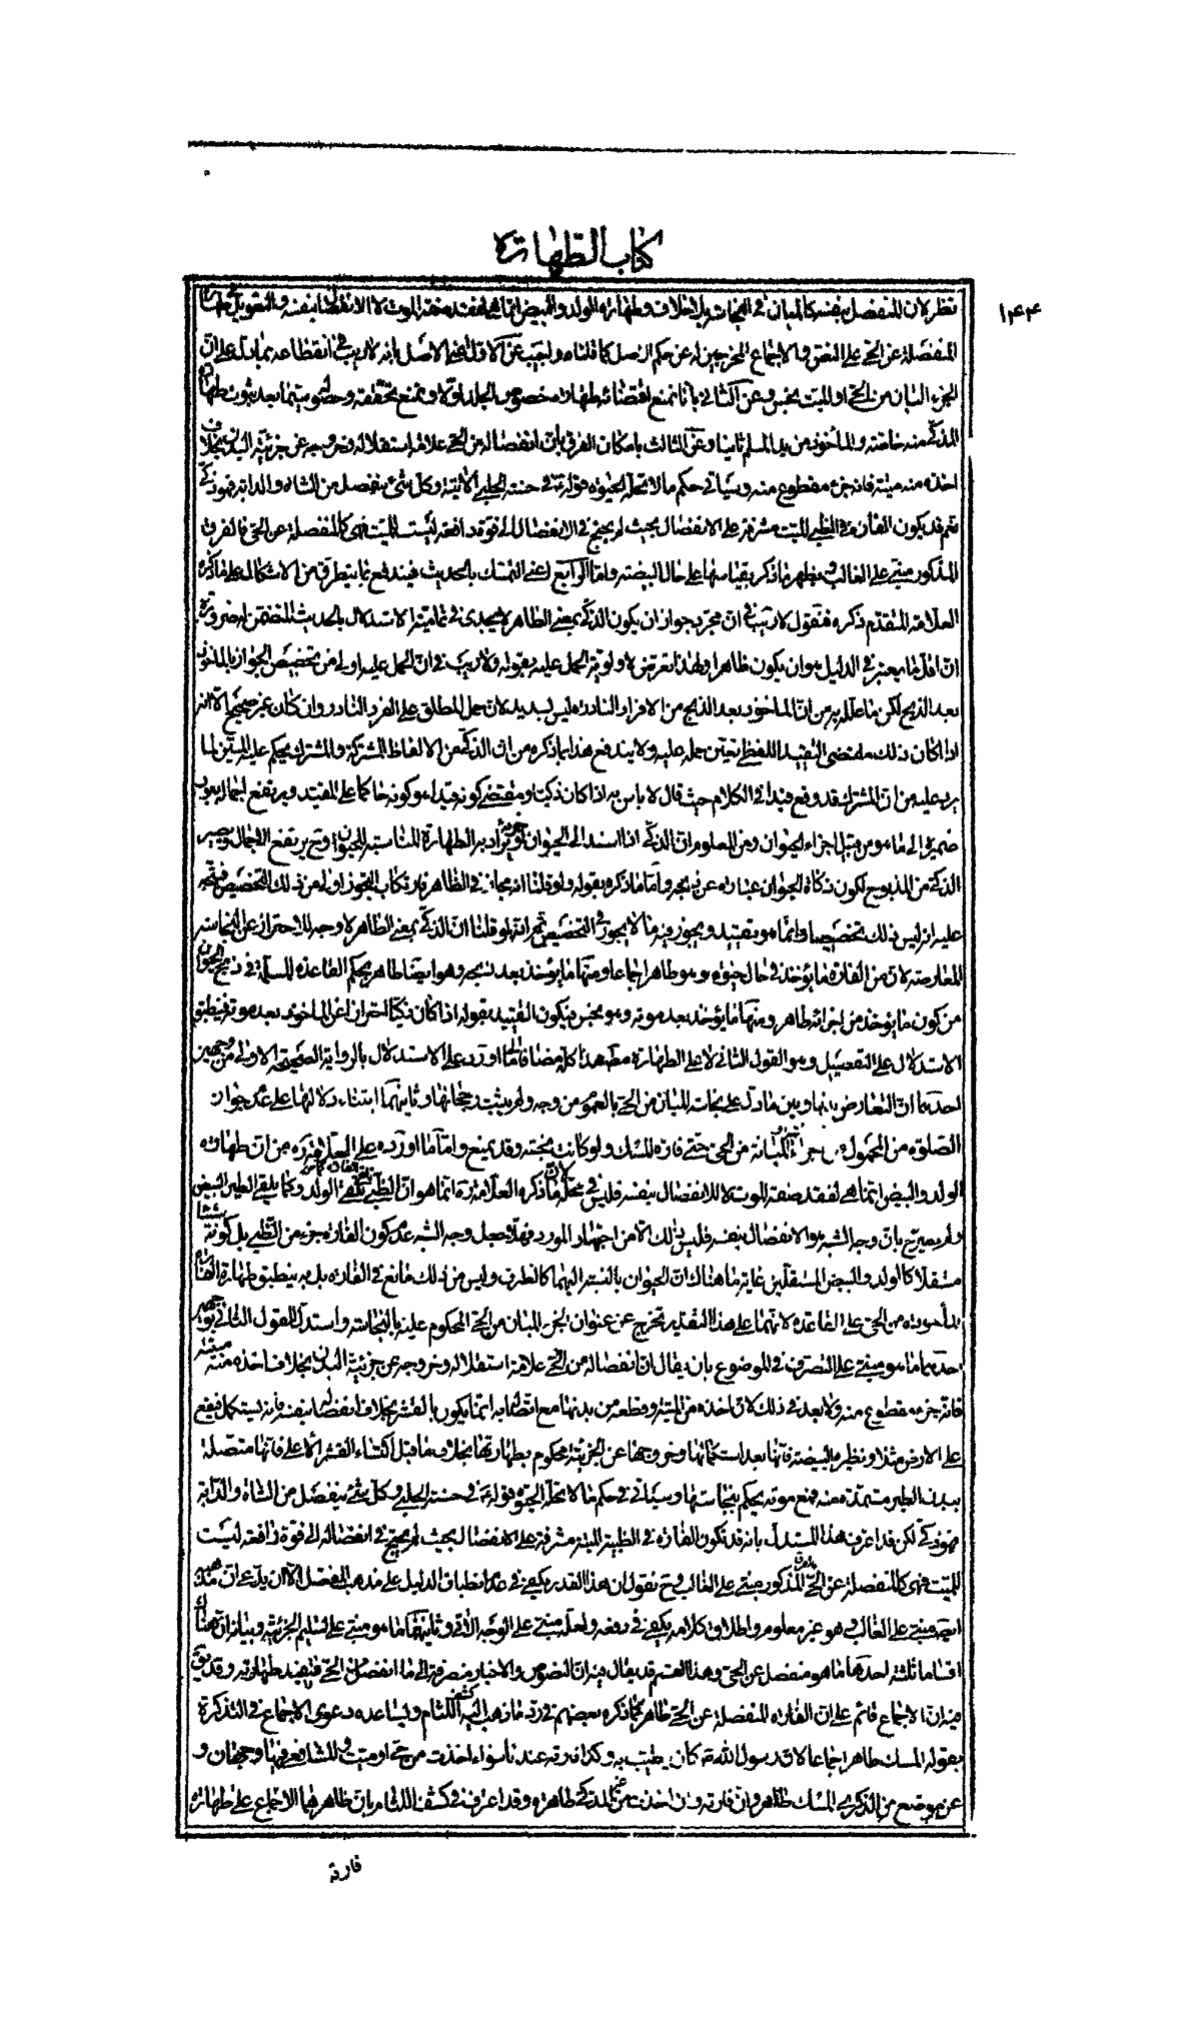 كتاب الطهارة
١٤٤
نظر لان المنفصل بنفسه كالمبان في النجاسة بلا خلاف وطهارة الولد والبيض انما هي لفقد صفة الموت لا الانفصال بنفسه والتعويل في طهارة
المنفصلة عن الحي على النص والاجماع المخرجين له عن حكم الاصل كما قلناه واجيب عن الاول اعني الاصل بانه لا ريب في انقطاعه بما دل على ان
الجزء المبان من الحي او الميت نجس وعن الثاني بانا نمنع اقتضائه طهارة خصوص الجلد اولا ونمنع تحققه وحصوله سيما بعد ثبوت طهارة
المذكى منه خاصة والمأخوذ من يد المسلم ثانيا وعن الثالث بامكان الفرق بان انفصاله من الحي علامة استقلاله وخروجه عن جزئية البدن بخلاف
اخذه منه ميتة فانه جزء مقطوع منه وسيأتي حكم ما لا تحله الحيوة قوله في حسنة الحلبي الآتية وكل شيء ينفصل من الشاة والدابة فهو ذكي
نعم قد يكون الفارة في الظبي الميت مشرفة على الانفصال بحيث لم يحتج في الانفصال الى قوة دافعة ليست للميت فهي كالمنفصلة عن الحي فالفرق
المذكور مبني على الغالب ويظهر ما ذكر بقياسها على حال البيضة واما الرابع اعني التمسك بالحديث فيندفع بما يتطرق من الاشكال على ما ذكره
العلامة المتقدم ذكره فنقول لا ريب في ان مجرد جواز ان يكون الذكي بمعنى الطاهر لا يجدي في تمامية الاستدلال بالحديث المتضمن له ضرورة
ان اقل ما يعتبر في الدليل هو ان يكون ظاهرا ولهذا تعرض لاولوية الحمل عليه بقوله ولا ريب في ان الحمل عليه اولى من تخصيص الجواز بالمأخوذ
بعد الذبح لكن ما علله به من ان المأخوذ بعد الذبح من الافراد النادرة ليس بسديد لان حمل المطلق على الفرد النادر وان كان غير صحيح الا انه
اذا كان ذلك مقتضى التقييد اللفظي تعين حمله عليه ولا يندفع هذا بما ذكره من ان الذكي من الالفاظ المشتركة والمشترك يحكم عليه المبين لما
يرد عليه من ان المشترك قد وقع قيدا في الكلام حيث قال لا باس به اذا كان ذكيا ومقتضى كونه قيدا هو كونه حاكما على المقيد ويرتفع اجماله بعود
ضميره الى ما هو من قبيل اجزاء الحيوان ومن المعلوم ان الذكي اذا اسند الى الحيوان او جزئه يراد به الطهارة المناسبة للحيوان وح يرتفع الاجمال ويصير
الذكي من المذبوح لكون ذكاة الحيوان عبارة عن ذبحه واما ما ذكره بقوله ولو قلنا انه مجاز في الظاهر فارتكاب التجوز اولى من ذلك التخصيص فيتجه
عليه انه ليس ذلك تخصيصا وانما هو تقييد ويجوز فيه ما لا يجوز في التخصيص ثم انه لو قلنا ان الذكي بمعنى الطاهر لا وجه للاحتراز عن النجاسة
المعارضة لان من الفارة ما يؤخذ في حال حيوته وهو طاهر اجماعا ومنها ما يؤخذ بعد ذبحه وهو ايضا طاهر بحكم القاعدة المسلمة في ذبح الحيوان
من كون ما يؤخذ من اجزائه طاهر ومنها ما يؤخذ بعد موته وهو نجس فيكون التقييد بقوله اذا كان ذكيا احترازا عن المأخوذ بعد موته فينطبق
الاستدلال على التفصيل وهو القول الثاني لا على الطهارة مطلقا هذا كله مضافا الى ما اورد على الاستدلال بالرواية الصحيحة الاولى من وجهين
احدهما ان التعارض بينها وبين ما دل على نجاسة المبان من الحي بالعموم من وجه ولم يثبت رجحانها وثانيهما ابتناء دلالتها على عدم جواز
الصلوة من المحمول من اجزاء المبانة من الحي حتى فارة المسك ولو كانت نجسة وقد يمنع واما ما اورده على العلامة من ان طهارة
الولد والبيض انما هي لفقد صفة الموت لا للانفصال بنفسه فليس في محله لان ما ذكره العلامة ره انما هو ان الظبي يلقي الفارة كما يلقي الولد وكما يلقي الطير البيض
ولم يصرح بان وجه الشبه هو الانفصال بنفسه فليس ذلك الا من اجتهاد المورد فهلا جعل وجه الشبه عدم كون الفارة جزء من الظبي بل كونه شيئا
مستقلا كالولد والبيض المستقلين غاية ما هناك ان الحيوان بالنسبة اليهما كالظرف وليس من ذلك مانع في الفارة بل به ينطبق طهارة الفارة
المأخوذة من الحي على القاعدة لانها على هذا التقدير تخرج عن عنوان الجزء المبان من الحي المحكوم عليه بالنجاسة واستدل للقول الثاني بوجهين
احدهما ما هو مبني على التصرف في الموضوع بان يقال ان انفصاله من الحي علامة استقلاله وخروجه عن جزئية البدن بخلاف اخذه منه ميتة
فانه جزء مقطوع منه ولا بعد في ذلك لان اخذه من الميتة وقطعه من بدنها مع اتصاله به انما يكون بالقشر بخلاف انفصاله بنفسه فانه يستكمل فيقع
على الارض مثلا ونظيره البيضة فانها بعد استكمالها وخروجها عن الجزئية محكوم بطهارتها بخلاف ما قبل اكتساء القشر الاعلى فانها متصلة
ببدن الطير مستمدة منه فمع موته يحكم بنجاستها وسيأتي في حكم ما لا تحله الحيوة قوله في حسنة الحلبي وكل شيء ينفصل من الشاة والدابة
فهو ذكي لكن قد اعترف هذا المستدل بانه قد تكون الفارة في الظبية الميتة مشرفة على الانفصال بحيث لم يحتج في انفصاله الى قوة دافعة ليست
للميت فهي كالمنفصلة عن الحي فالفرق المذكور مبني على الغالب وح نقول ان هذا القدر يكفي في عدم انطباق الدليل على مذهب المفصل الا ان يدعي ان مذهبه
ايضا مبني على الغالب وهو غير معلوم واطلاق كلامه يكفي في دفعه ولعله مبني على الوجه الآتي وثانيهما ما هو مبني على تسليم الجزئية وبيانه ان هناك
اقساما ثلثة احدها ما هو منفصل عن الحي وهذا القسم قد يقال فيه ان النصوص والاخبار منصرفة الى ما انفصل من الحي فتفيد طهارته وقد يق
فيه ان الاجماع قائم على ان الفارة المنفصلة عن الحي طاهر كما ذكره بعضهم في رد ما ذهب اليه كشف اللثام ويساعده دعوى الاجماع في التذكرة
بقوله المسك طاهر اجماعا لان رسول الله ص كان يتطيب به وكذا فارته عندنا سواء اخذت من حي او ميت وللشافعي فيها وجهان و
عن موضع من الذكرى المسك طاهر وان فارته وان اخذت من غير المذكى طاهرة وقد اعترف في كشف اللثام بان ظاهرهما الاجماع على طهارة
فارته